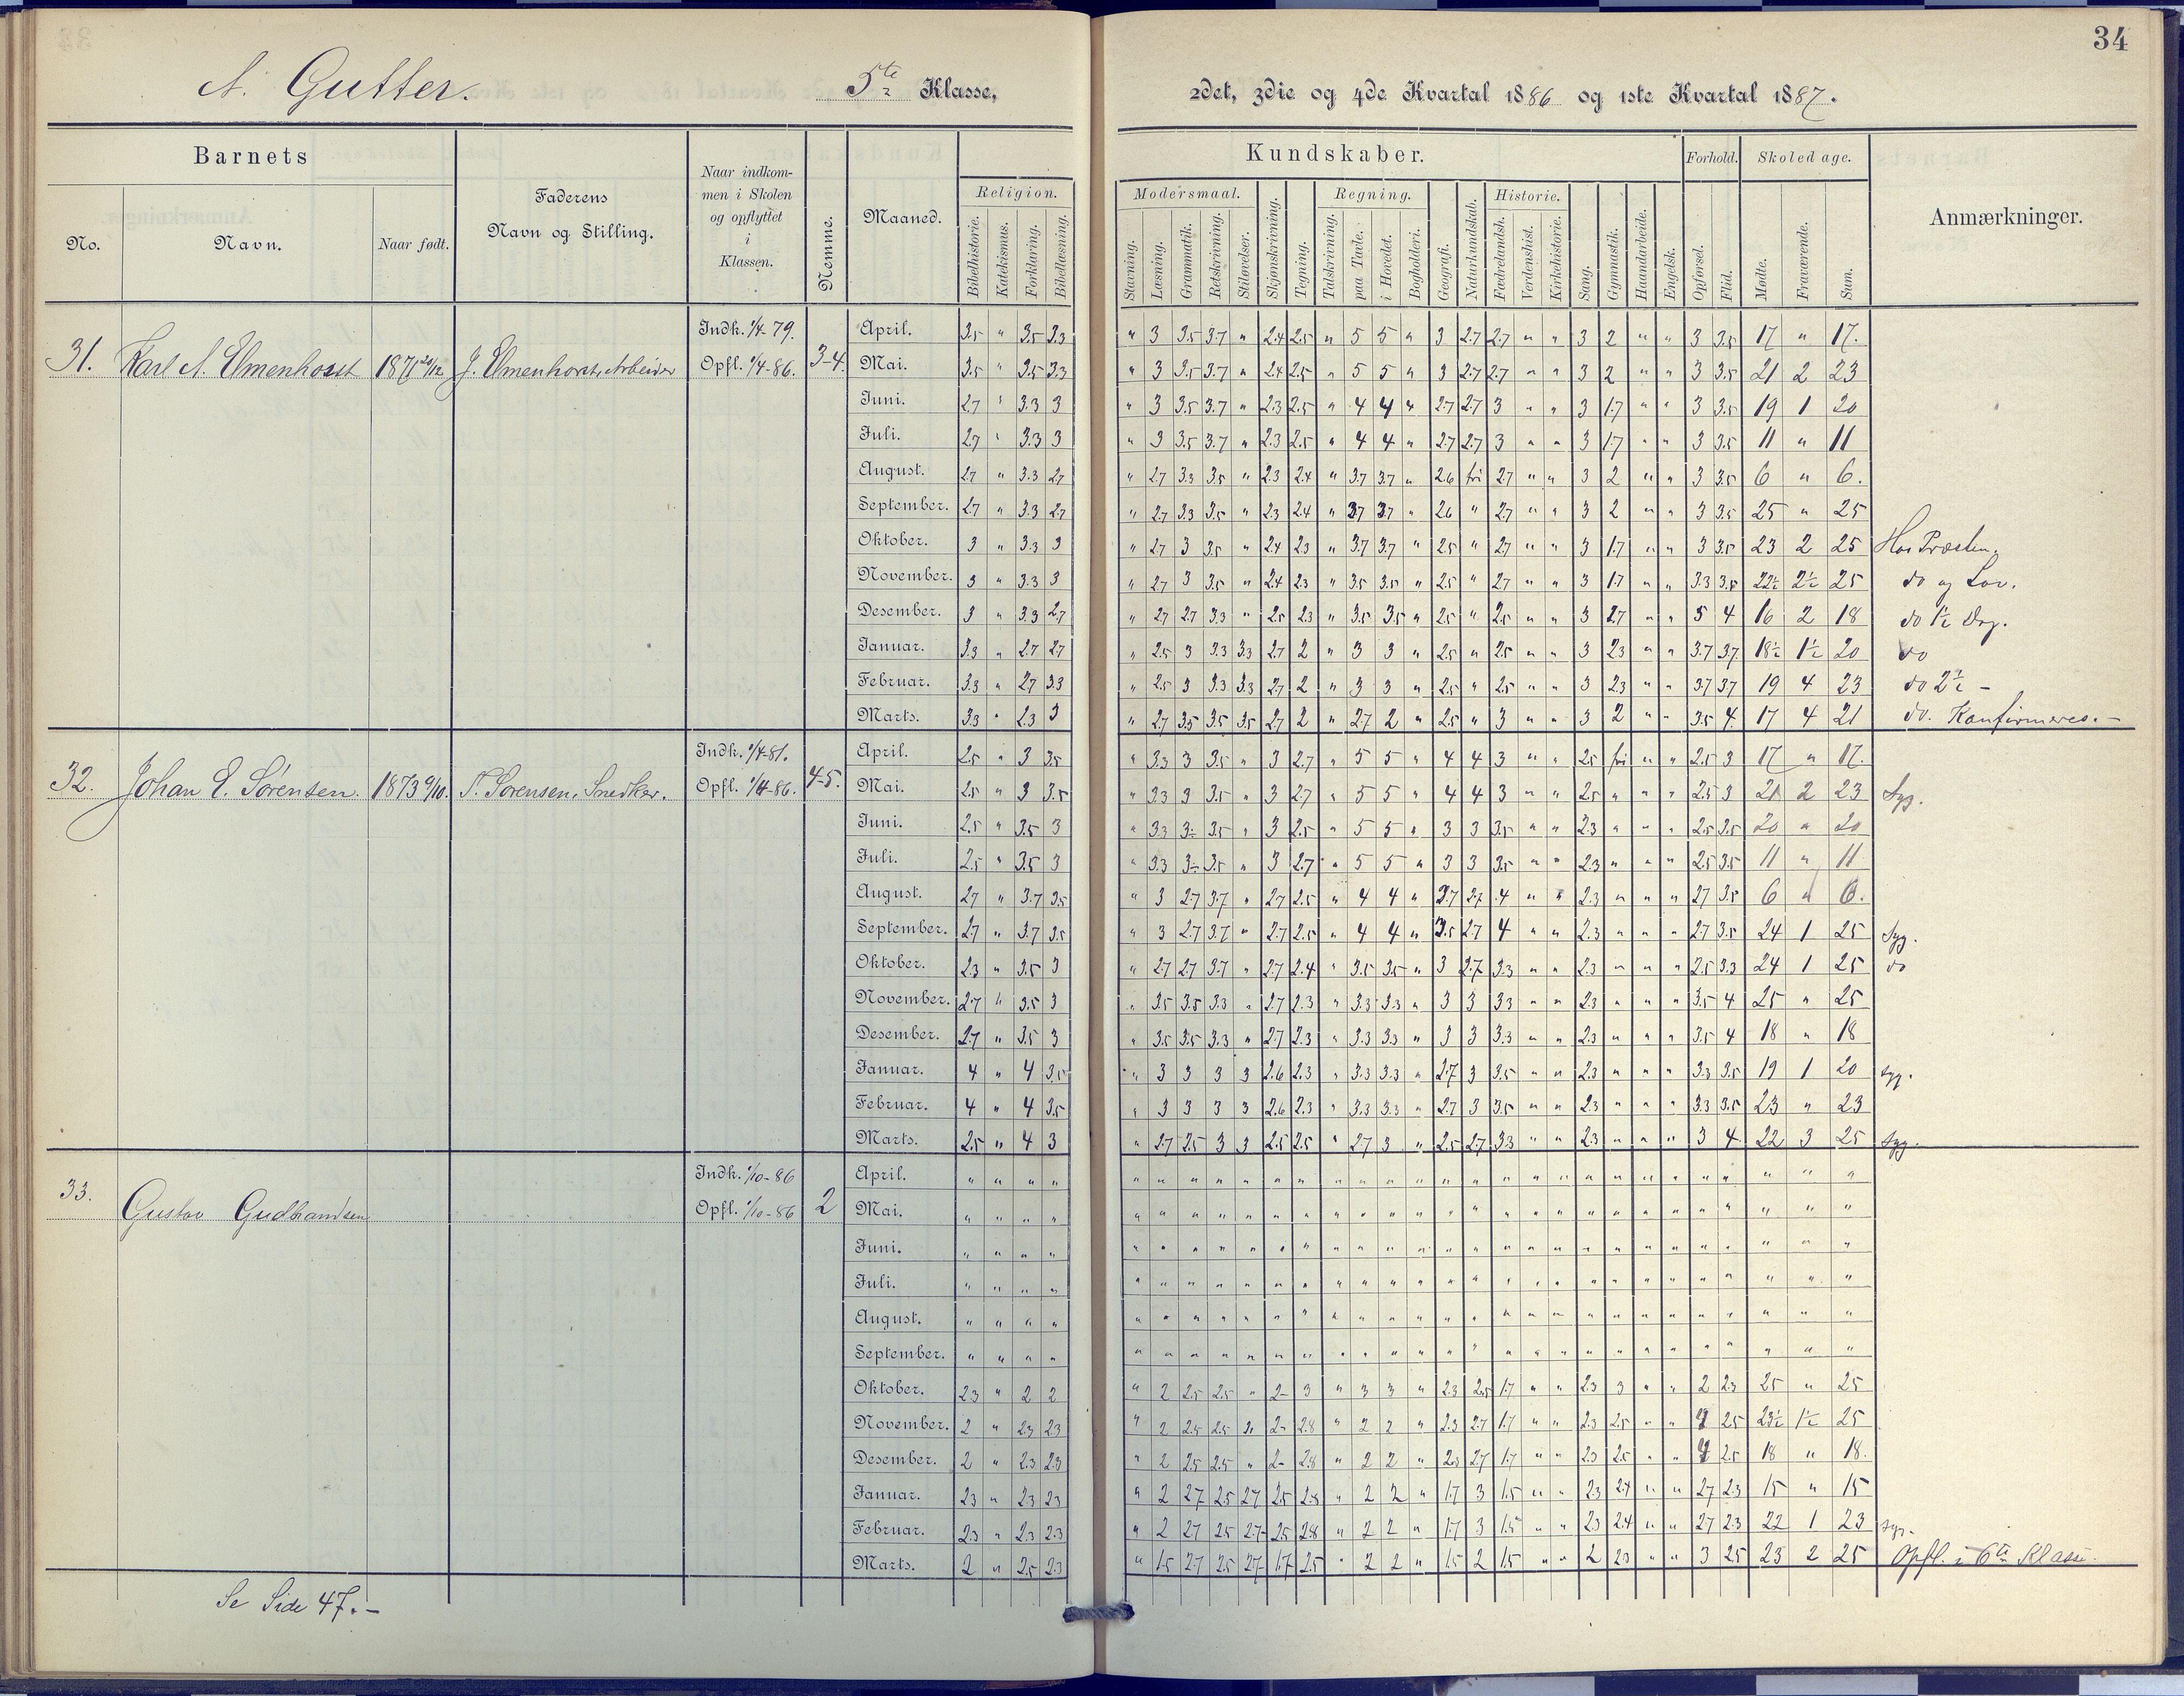 34
A. Gutter. 5te Klasse, 2det, 3die og 4de Kvartal 1886 og 1ste Kvartal 1887.
Barnets
Kundskaber. Forhold. Skoledage.
No. Navn. Naar født. Faderens Navn og Stilling. Naar indkommen i Skolen og opflyttet i Klassen. Nemme. Maaned.
Religion. Modersmaal. Regning. Historie. Anmærkninger.
Bibelhistorie. Katekismus. Forklaring. Bibellæsning. Stavning. Læsning. Grammatik. Retskrivning. Stiløvelser. Skjønskrivning. Tegning. Talskrivning. paa Tavle. i Hovedet. Bogholderi. Geografi. Naturkundskab. Fædrelandsh. Verdenshist. Kirkehistorie. Sang. Gymnastik. Haandarbeide. Engelsk. Opførsel. Flid. Mødte. Fraværende. Sum.
31. Karl A. Elmenhorst 1871 J. Elmenhorst, Arbeider Indk. 1/4-79. Opfl. 1/4-86. 3-4.
April. 3.5 " 3.5 3.3 " 3 3.5 3.7 " 2.4 2.5 " 5 5 " 3 2.7 2.7 " " 3 2 " " 3 3.5 17 " 17.
Mai. 3.5 " 3.5 3.3 " 3 3.5 3.7 " 2.4 2.5 " 5 5 " 3 2.7 2.7 " " 3 2 " " 3 3.5 21 2 23
Juni. 2.7 " 3.3 3 " 3 3.5 3.7 " 2.3 2.5 " 4 4 " 2.7 2.7 3 " " 3 1.7 " " 3 3.5 19 1 20
Juli. 2.7 " 3.3 3 " 3 3.5 3.7 " 2.3 2.5 " 4 4 " 2.7 2.7 3 " " 3 1.7 " " 3 3.5 11 " 11
August. 2.7 " 3.3 2.7 " 2.7 3.3 3.5 " 2.3 2.4 " 3.7 3.7 " 2.6 fri 2.7 " " 3 2 " " 3 3.5 6 " 6.
September. 2.7 " 3.3 2.7 " 2.7 3.3 3.5 " 2.3 2.4 " 3.7 3.7 " 2.6 " 2.7 " " 3 2 " " 3 3.5 25 " 25
Oktober. 3 " 3.3 3 " 2.7 3 3.5 " 2.4 2.3 " 3.7 3.7 " 2.5 " 2.7 " " 3 1.7 " " 3 3.5 23 2 25 Hos Præsten.
November. 3 " 3.3 3 " 2.7 3 3.5 " 2.4 2.3 " 3.5 3.5 " 2.5 " 2.7 " " 3 1.7 " " 3.3 3.5 22½ 2½ 25 do og Lov.
Desember. 3 " 3.3 2.7 " 2.7 2.7 3.3 " 2.5 2.3 " 3.5 3.5 " 2.5 " 2.5 " " 3 2.7 " " 5 4 16 2 18 do 1½ Dag.
Januar. 3.3 " 2.7 2.7 " 2.5 3 3.3 3.3 2.7 2 " 3 3 " 2.5 " 2.5 " " 3 2.3 " " 3.7 3.7 18½ 1½ 20 do
Februar. 3.3 " 2.7 3.3 " 2.5 3 3.3 3.3 2.7 2 " 3 3 " 2.5 " 2.5 " " 3 2.3 " " 3.7 3.7 19 4 23 do 2½ -
Marts. 3.3 " 2.3 3 " 2.7 3.5 3.5 3.5 2.7 2 " 2.7 2 " 2.5 " 3 " " 3 2 " " 3.5 4 17 4 21 do. Konfirmeres. -
32. Johan E. Sørensen. 1873 9/10. T. Sørensen, Snedker. Indk. 1/4-81. Opfl. 1/4-86. 4-5.
April. 2.5 " 3 3.5 " 3.3 3 3.5 " 3 2.7 " 5 5 " 4 4 3 " " 2.5 fri " " 2.5 3 17 " 17.
Mai. 2.5 " 3 3.5 " 3.3 3 3.5 " 3 2.7 " 5 5 " 4 4 3 " " 2.5 " " " 2.5 3 21 2 23 Syg.
Juni. 2.5 " 3.5 3 " 3.3 3- 3.5 " 3 2.5 " 5 5 " 3 3 3.5 " " 2.3 " " " 2.5 3.5 20 " 20
Juli. 2.5 " 3.5 3 " 3.3 3- 3.5 " 3 2.7 " 5 5 " 3 3 3.5 " " 2.3 " " " 2.5 3.5 11 " 11
August. 2.7 " 3.7 3.5 " 3 2.7 3.7 " 2.7 2.5 " 4 4 " 3.7 2.7 4 " " 2.3 " " " 2.7 3.5 6 " 6.
September. 2.7 " 3.7 3.5 " 3 2.7 3.7 " 2.7 2.5 " 4 4 " 3.5 2.7 4 " " 2.3 " " " 2.7 3.5 24 1 25 Syg.
Oktober. 2.3 " 3.5 3 " 2.7 2.7 3.7 " 2.7 2.4 " 3.5 3.5 " 3 2.7 3.3 " " 2.3 " " " 2.5 3.3 24 1 25 do
November. 2.7 " 3.5 3 " 3.5 3.5 3.3 " 2.7 2.3 " 3.3 3.3 " 3 3 3.3 " " 2.3 " " " 3.5 4 25 " 25
Desember. 2.7 " 3.5 3 " 3.5 3.5 3.3 " 2.7 2.3 " 3.3 3.3 " 3 3 3.3 " " 2.3 " " " 3.5 4 18 " 18
Januar. 4 " 4 3.5 " 3 3 3 3 2.6 2.3 " 3.3 3.3 " 2.7 3 3.5 " " 2.3 " " " 3.3 3.5 19 1 20 syg.
Februar. 4 " 4 3.5 " 3 3 3 3 2.6 2.3 " 3.3 3.3 " 2.7 3 3.5 " " 2.3 " " " 3.3 3.5 23 " 23
Marts. 2.5 " 4 3 " 2.7 2.5 3 3 2.5 2.5 " 2.7 3 " 2.5 2.7 3.3 " " 2.3 " " " 3 4 22 3 25 syg.
33. Gustav Gudbrandsen Indk. 1/10-86 Opfl. 1/10-86 2
April. " " " " " " " " " " " " " " " " " " " " " " " " " " " " "
Mai. " " " " " " " " " " " " " " " " " " " " " " " " " " " " "
Juni. " " " " " " " " " " " " " " " " " " " " " " " " " " " " "
Juli. " " " " " " " " " " " " " " " " " " " " " " " " " " " " "
August. " " " " " " " " " " " " " " " " " " " " " " " " " " " " "
September. " " " " " " " " " " " " " " " " " " " " " " " " " " " " "
Oktober. 2.3 " 2 2 " 2 2.5 2.5 " 2- 3 " 3 3 " 2.3 2.5 1.7 " " 2.3 3 " " 2 2.3 25 " 25
November. 2 " 2.3 2.3 " 2 2.5 2.5 " 2- 2.8 " 2 2 " 2.3 2.7 1.7 " " 2.3 2.5 " " 2.5 23½ 1½ 25
Desember. 2 " 2.3 2.3 " 2 2.5 2.5 " 2- 2.8 " 2 2 " 2.3 2.7 1.7 " " 2.3 2.5 " " 2.5 18 " 18.
Januar. 2.3 " 2.3 2.3 " 2 2.7 2.5 2.7 2.5 2.8 " 2 2 " 1.7 3 1.5 " " 2.3 2.4 " " 2.7 2.3 15 " 15
Februar. 2.3 " 2.3 2.3 " 2 2.7 2.5 2.7- 2.5 2.8 " 2 2 " 1.7 3 1.5 " " 2.3 2.4 " " 2.7 2.3 22 1 23 syg.
Marts. 2 " 2.5 2.3 " 1.5 2.7 2.5 2.7- 1.7 2.5 " 2 2 " 1.5 2 1.5 " " 2 2.3 " " 3 2.5 23 2 25 Opfl. i 6te Klasse.
Se Side 47. -